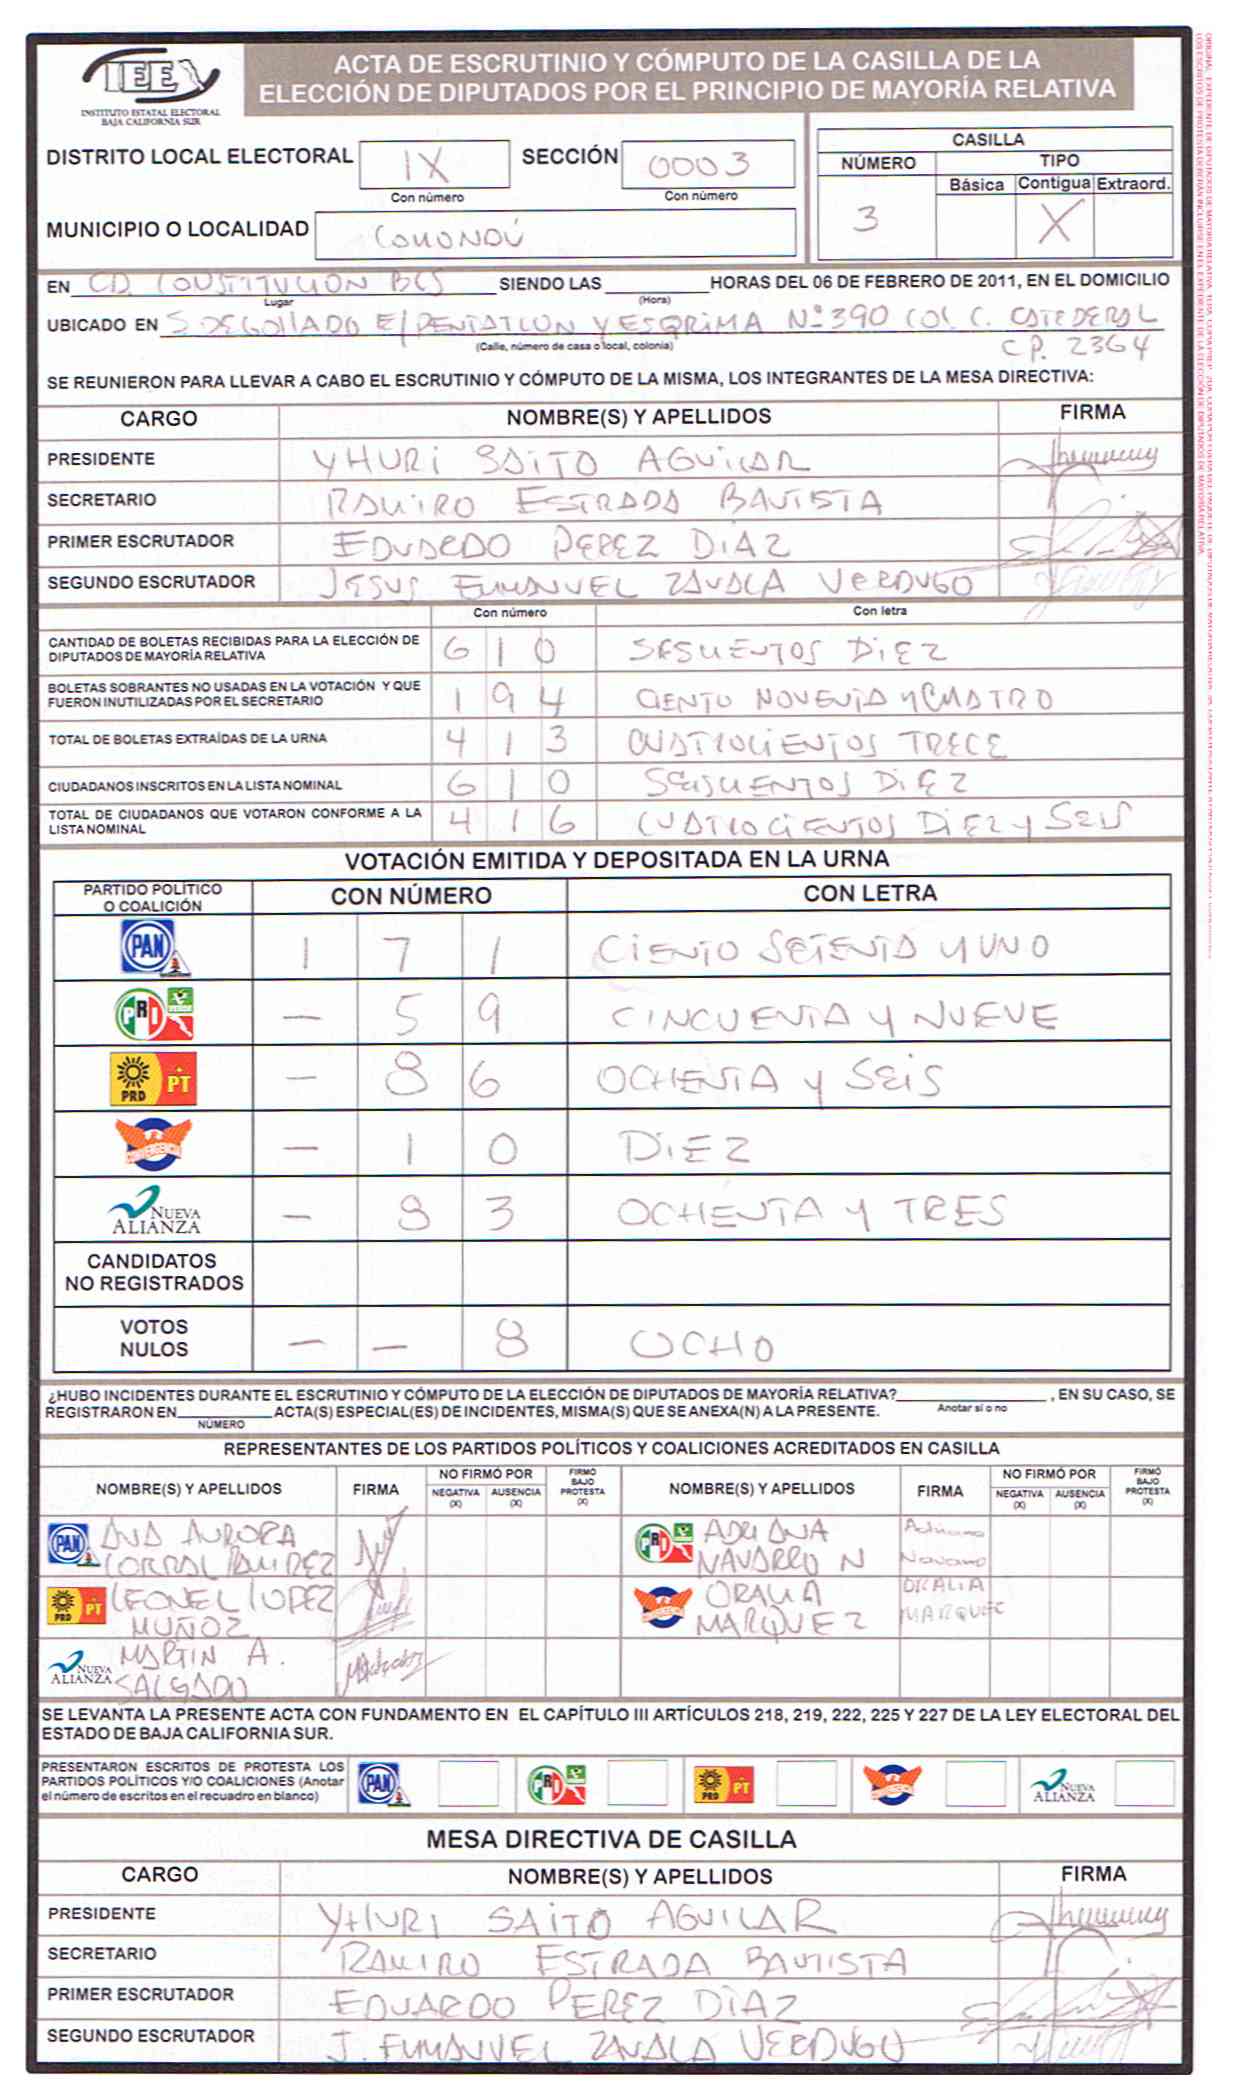 IEE
INSTITUTO ESTATAL ELECTORAL
BAJA CALIFORNIA SUR
ACTA DE ESCRUTINIO Y CÓMPUTO DE LA CASILLA DE LA
ELECCIÓN DE DIPUTADOS POR EL PRINCIPIO DE MAYORÍA RELATIVA
DISTRITO LOCAL ELECTORAL IX SECCIÓN 0003
Con número Con número
MUNICIPIO O LOCALIDAD COMONDÚ
CASILLA
NÚMERO TIPO
Básica Contigua Extraord.
3 X
EN CD. CONSTITUCION BCS SIENDO LAS HORAS DEL 06 DE FEBRERO DE 2011, EN EL DOMICILIO
Lugar (Hora)
UBICADO EN S. DEGOLLADO E/ PENTATLON Y ESGRIMA Nº 390 COL C. CATEDERAL
(Calle, número de casa o local, colonia) C.P. 2364
SE REUNIERON PARA LLEVAR A CABO EL ESCRUTINIO Y CÓMPUTO DE LA MISMA, LOS INTEGRANTES DE LA MESA DIRECTIVA:
CARGO NOMBRE(S) Y APELLIDOS FIRMA
PRESIDENTE YHURI SAITO AGUILAR
SECRETARIO RAMIRO ESTRADA BAUTISTA
PRIMER ESCRUTADOR EDUARDO PEREZ DIAZ
SEGUNDO ESCRUTADOR JESUS EMMANUEL ZAVALA VERDUGO
Con número Con letra
CANTIDAD DE BOLETAS RECIBIDAS PARA LA ELECCIÓN DE
DIPUTADOS DE MAYORÍA RELATIVA 6 1 0 SESCIENTOS DIEZ
BOLETAS SOBRANTES NO USADAS EN LA VOTACIÓN Y QUE
FUERON INUTILIZADAS POR EL SECRETARIO 1 9 4 CIENTO NOVENTA Y CUATRO
TOTAL DE BOLETAS EXTRAÍDAS DE LA URNA 4 1 3 CUATROCIENTOS TRECE
CIUDADANOS INSCRITOS EN LA LISTA NOMINAL 6 1 0 SEISCIENTOS DIEZ
TOTAL DE CIUDADANOS QUE VOTARON CONFORME A LA
LISTA NOMINAL 4 1 6 CUATROCIENTOS DIEZ Y SEIS
VOTACIÓN EMITIDA Y DEPOSITADA EN LA URNA
PARTIDO POLÍTICO
O COALICIÓN CON NÚMERO CON LETRA
PAN 1 7 1 CIENTO SETENTA Y UNO
PRI — 5 9 CINCUENTA Y NUEVE
PRD PT — 8 6 OCHENTA Y SEIS
CONVERGENCIA — 1 0 DIEZ
NUEVA
ALIANZA — 8 3 OCHENTA Y TRES
CANDIDATOS
NO REGISTRADOS
VOTOS
NULOS — — 8 OCHO
¿HUBO INCIDENTES DURANTE EL ESCRUTINIO Y CÓMPUTO DE LA ELECCIÓN DE DIPUTADOS DE MAYORÍA RELATIVA? , EN SU CASO, SE
Anotar sí o no
REGISTRARON EN ACTA(S) ESPECIAL(ES) DE INCIDENTES, MISMA(S) QUE SE ANEXA(N) A LA PRESENTE.
NÚMERO
REPRESENTANTES DE LOS PARTIDOS POLÍTICOS Y COALICIONES ACREDITADOS EN CASILLA
NOMBRE(S) Y APELLIDOS FIRMA NO FIRMÓ POR NEGATIVA (X) AUSENCIA (X) FIRMÓ BAJO PROTESTA (X) NOMBRE(S) Y APELLIDOS FIRMA NO FIRMÓ POR NEGATIVA (X) AUSENCIA (X) FIRMÓ BAJO PROTESTA (X)
PAN ANA AURORA PRI ADRIANA Adriana
CORRAL RAMIREZ NAVARRO N Navarro
PRD PT LEONEL LOPEZ CONVERGENCIA ORALIA ORALIA
MUÑOZ MARQUEZ MARQUEZ
NUEVA ALIANZA MARTIN A.
SALGADO
SE LEVANTA LA PRESENTE ACTA CON FUNDAMENTO EN EL CAPÍTULO III ARTÍCULOS 218, 219, 222, 225 Y 227 DE LA LEY ELECTORAL DEL
ESTADO DE BAJA CALIFORNIA SUR.
PRESENTARON ESCRITOS DE PROTESTA LOS
PARTIDOS POLÍTICOS Y/O COALICIONES (Anotar
el número de escritos en el recuadro en blanco)
PAN PRI PRD PT CONVERGENCIA NUEVA ALIANZA
MESA DIRECTIVA DE CASILLA
CARGO NOMBRE(S) Y APELLIDOS FIRMA
PRESIDENTE YHURI SAITO AGUILAR
SECRETARIO RAMIRO ESTRADA BAUTISTA
PRIMER ESCRUTADOR EDUARDO PEREZ DIAZ
SEGUNDO ESCRUTADOR J. EMMANUEL ZAVALA VERDUGO